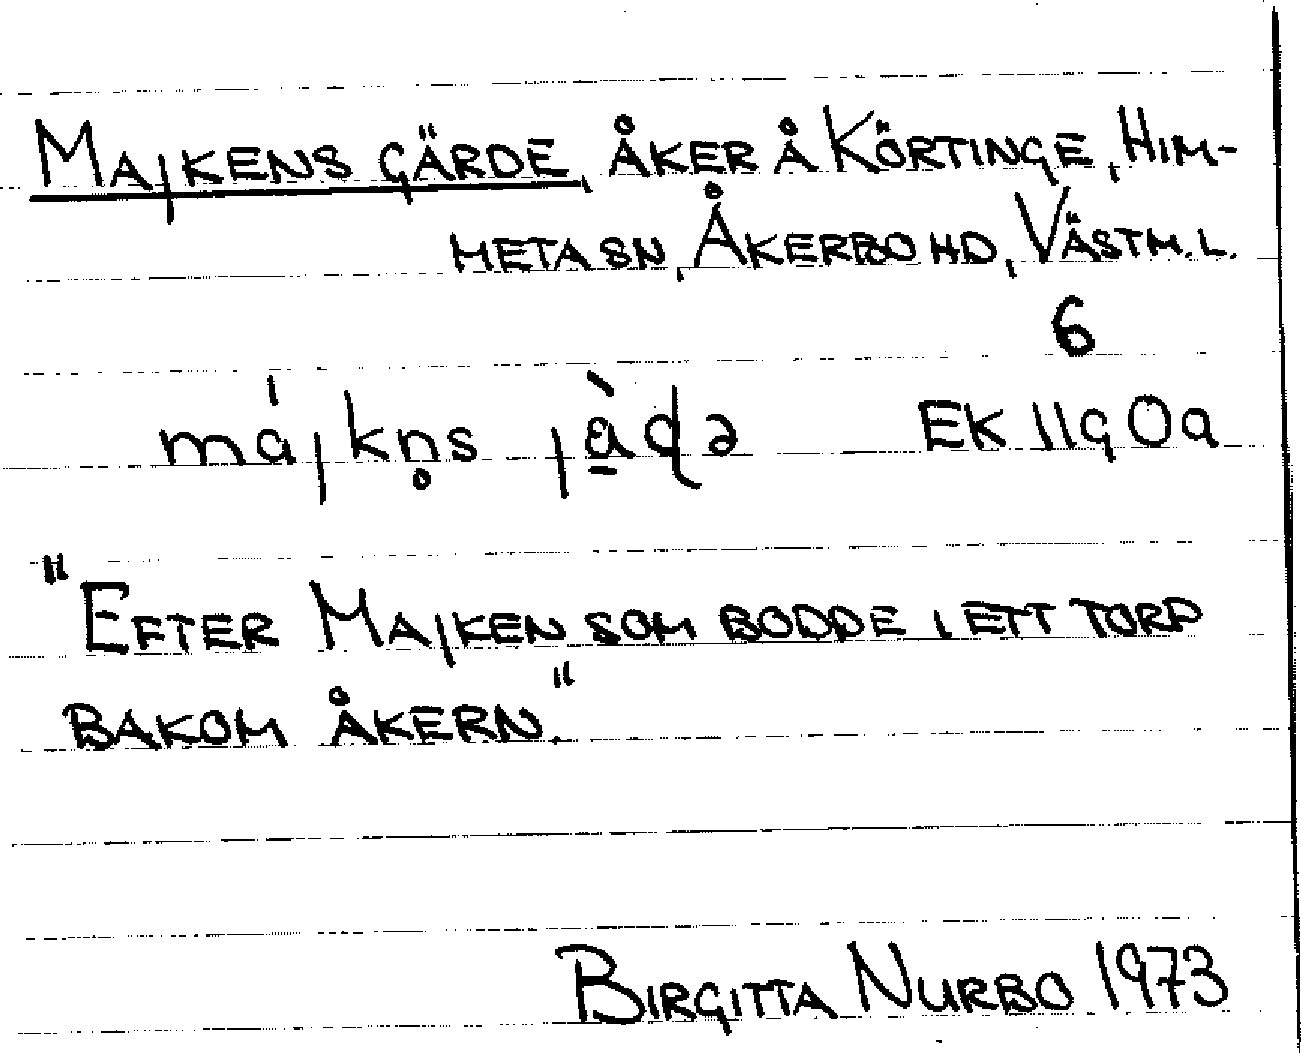 MAJKENS GÄRDE, ÅKER Å KÖRTINGE, HIM-
META SN, ÅKERBO HD, VÄSTM.L.
6
májkn̥s jà̱ɖə EK 11g 0a
"EFTER MAJKEN SOM BODDE I ETT TORP
BAKOM ÅKERN."
BIRGITTA NURBO 1973